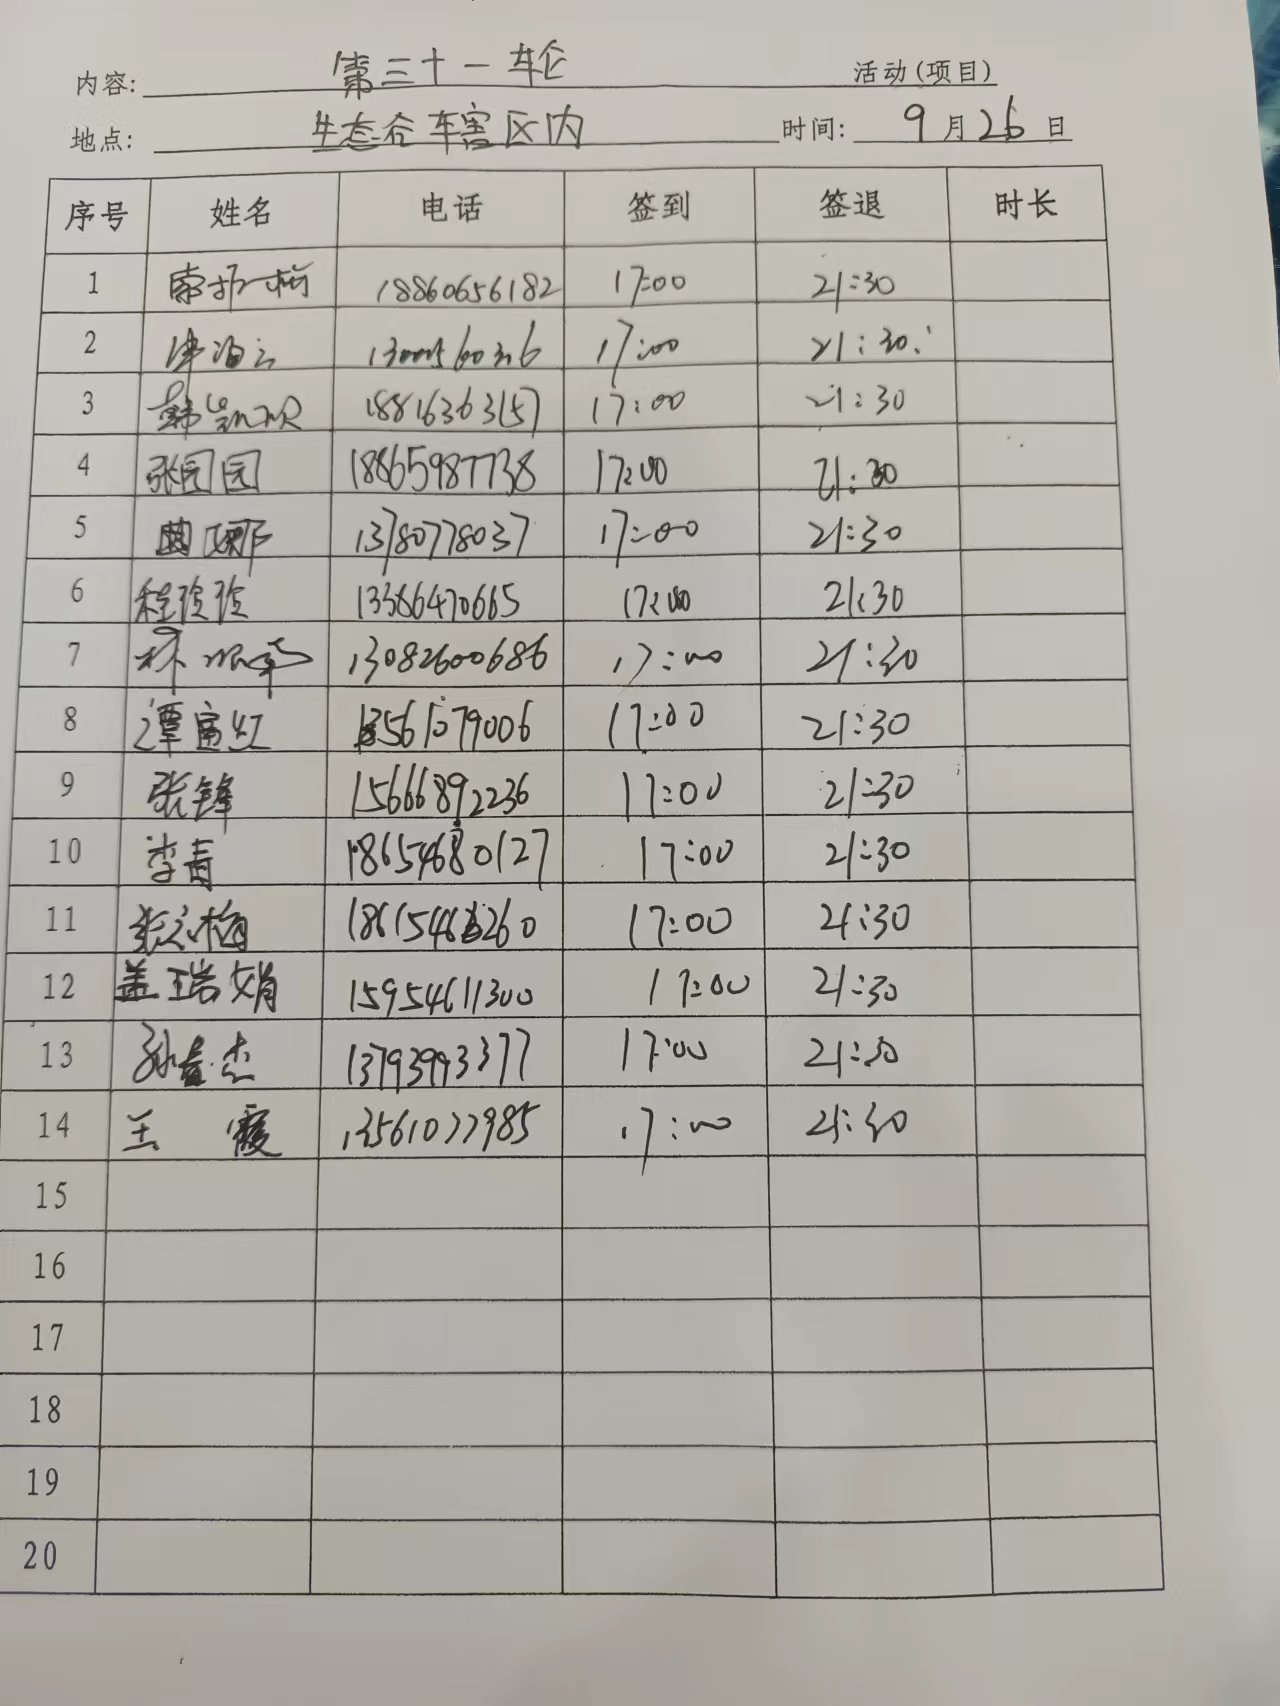 内容: 第三十一轮 活动(项目)
地点: 生态谷辖区内 时间: 9月26日
序号 姓名 电话 签到 签退 时长
1 18860656182 17:00 21:30
2 17:00 21:30
3 18816363157 17:00 21:30
4 张园园 18865987738 17:00 21:30
5 曲娜 13780778037 17:00 21:30
6 程玲玲 13386470665 17:00 21:30
7 13082600686 17:00 21:30
8 谭富红 13561079006 17:00 21:30
9 张锋 15666892236 17:00 21:30
10 李青 18654680127 17:00 21:30
11 17:00 21:30
12 盖瑞娟 15954611300 17:00 21:30
13 13793993377 17:00 21:30
14 王霞 13561077985 17:00 21:30
15
16
17
18
19
20